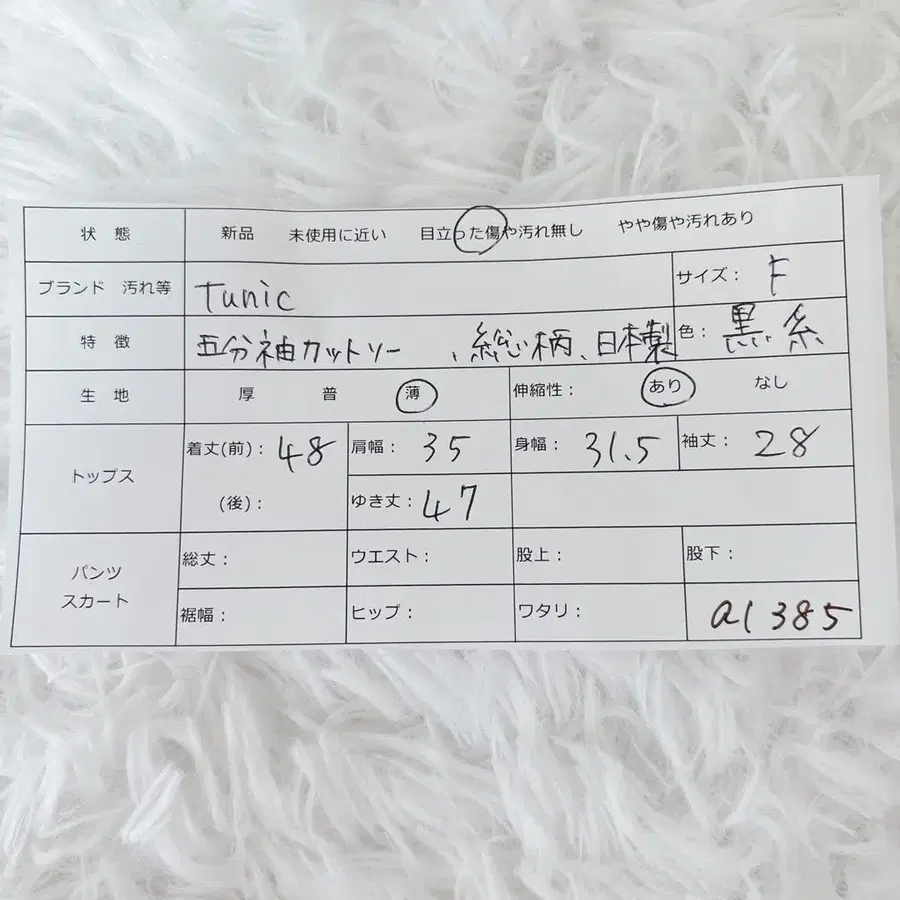 状態 新品 未使用に近い 目立った傷や汚れ無し やや傷や汚れあり
ブランド 汚れ等 tunic サイズ： F
特徴 五分袖カットソー 、総柄、日本製 色： 黒糸
生地 厚 普 薄 伸縮性： あり なし
トップス 着丈(前)： 48 肩幅： 35 身幅： 31.5 袖丈： 28
(後)： ゆき丈： 47
パンツ スカート 総丈： ウエスト： 股上： 股下：
裾幅： ヒップ： ワタリ： a1385